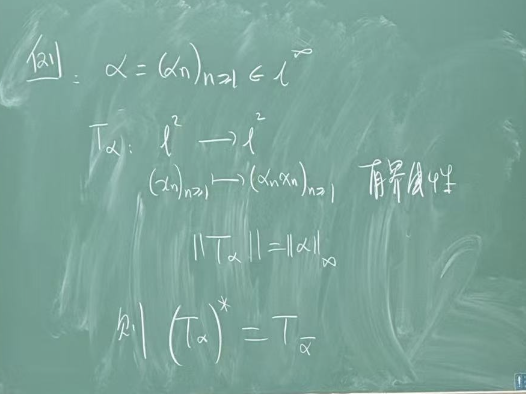 例: α = (αn)n≥1 ∈ l^∞
Tα: l² → l²
(xn)n≥1 ↦ (αn xn)n≥1 有界线性
||Tα|| = ||α||∞
则 (Tα)* = Tᾱ